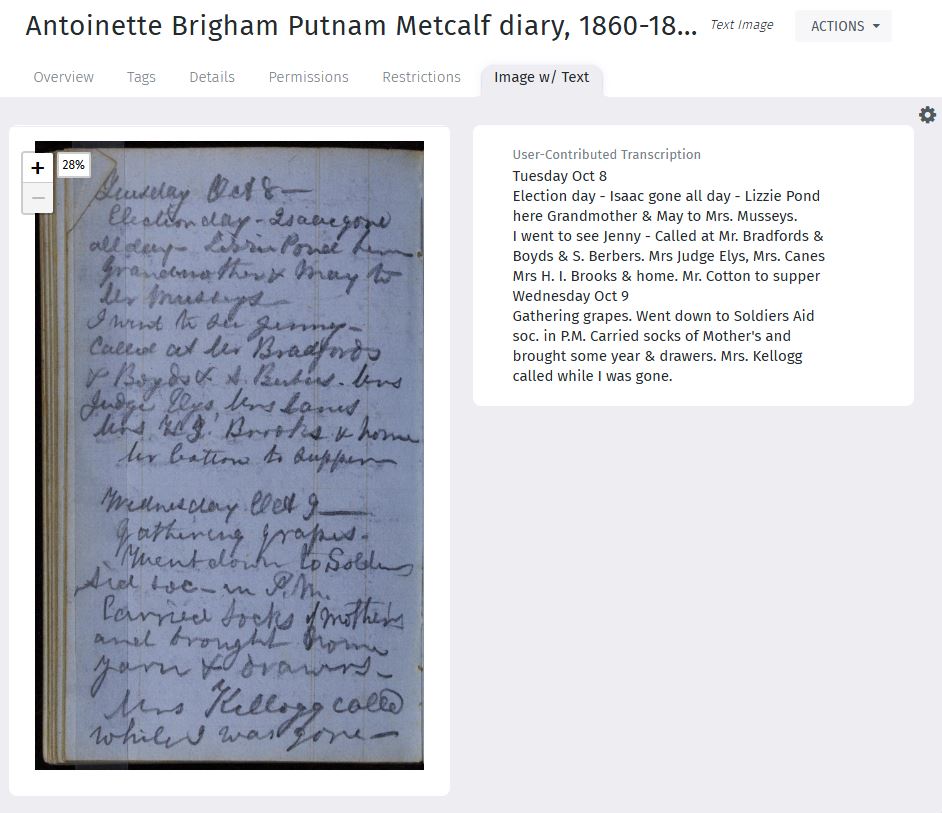 Antoinette Brigham Putnam Metcalf diary, 1860-18...
Text Image
ACTIONS
Overview
Tags
Details
Permissions
Restrictions
Image w/ Text
+
28%
−
Tuesday Oct 8—
Election day - Isaac gone
all day - Lizzie Pond here.
Grandmother & May to
Mr Musseys—
I went to see Jenny—
Called at Mr Bradfords
& Boyds & S. Berbers. Mrs
Judge Elys, Mrs Canes
Mrs. H.I. Brooks & home
Mr Cotton to supper—
Wednesday Oct 9—
Gathering grapes.
Went down to Soldiers
Aid soc— in P.M.
Carried socks of mothers
and brought home
yarn & drawers—
Mrs Kellogg called
while I was gone—
User-Contributed Transcription
Tuesday Oct 8
Election day - Isaac gone all day - Lizzie Pond
here Grandmother & May to Mrs. Musseys.
I went to see Jenny - Called at Mr. Bradfords &
Boyds & S. Berbers. Mrs Judge Elys, Mrs. Canes
Mrs H. I. Brooks & home. Mr. Cotton to supper
Wednesday Oct 9
Gathering grapes. Went down to Soldiers Aid
soc. in P.M. Carried socks of Mother's and
brought some year & drawers. Mrs. Kellogg
called while I was gone.